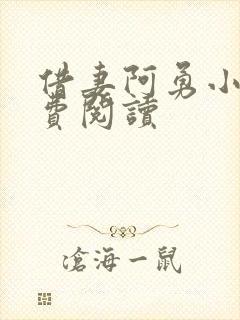 借妻阿勇小
費閱讀
滄海一鼠